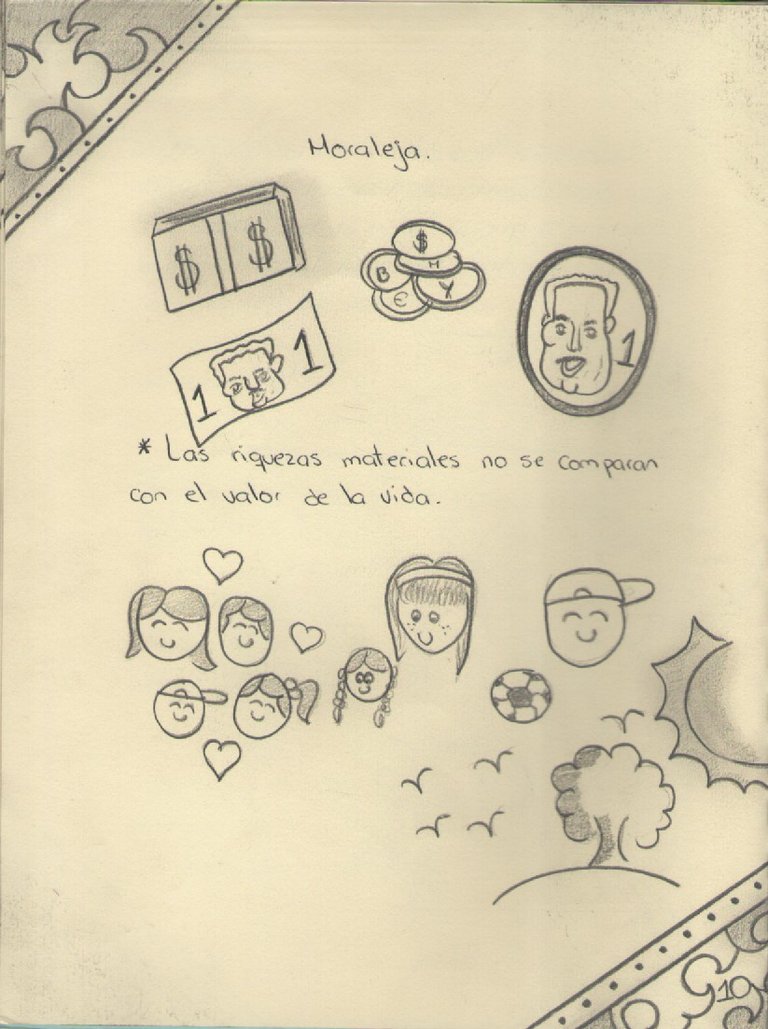 Moraleja.
$ $
$
B H
€ Y
1 1
1
* Las riquezas materiales no se comparan
con el valor de la vida.
10